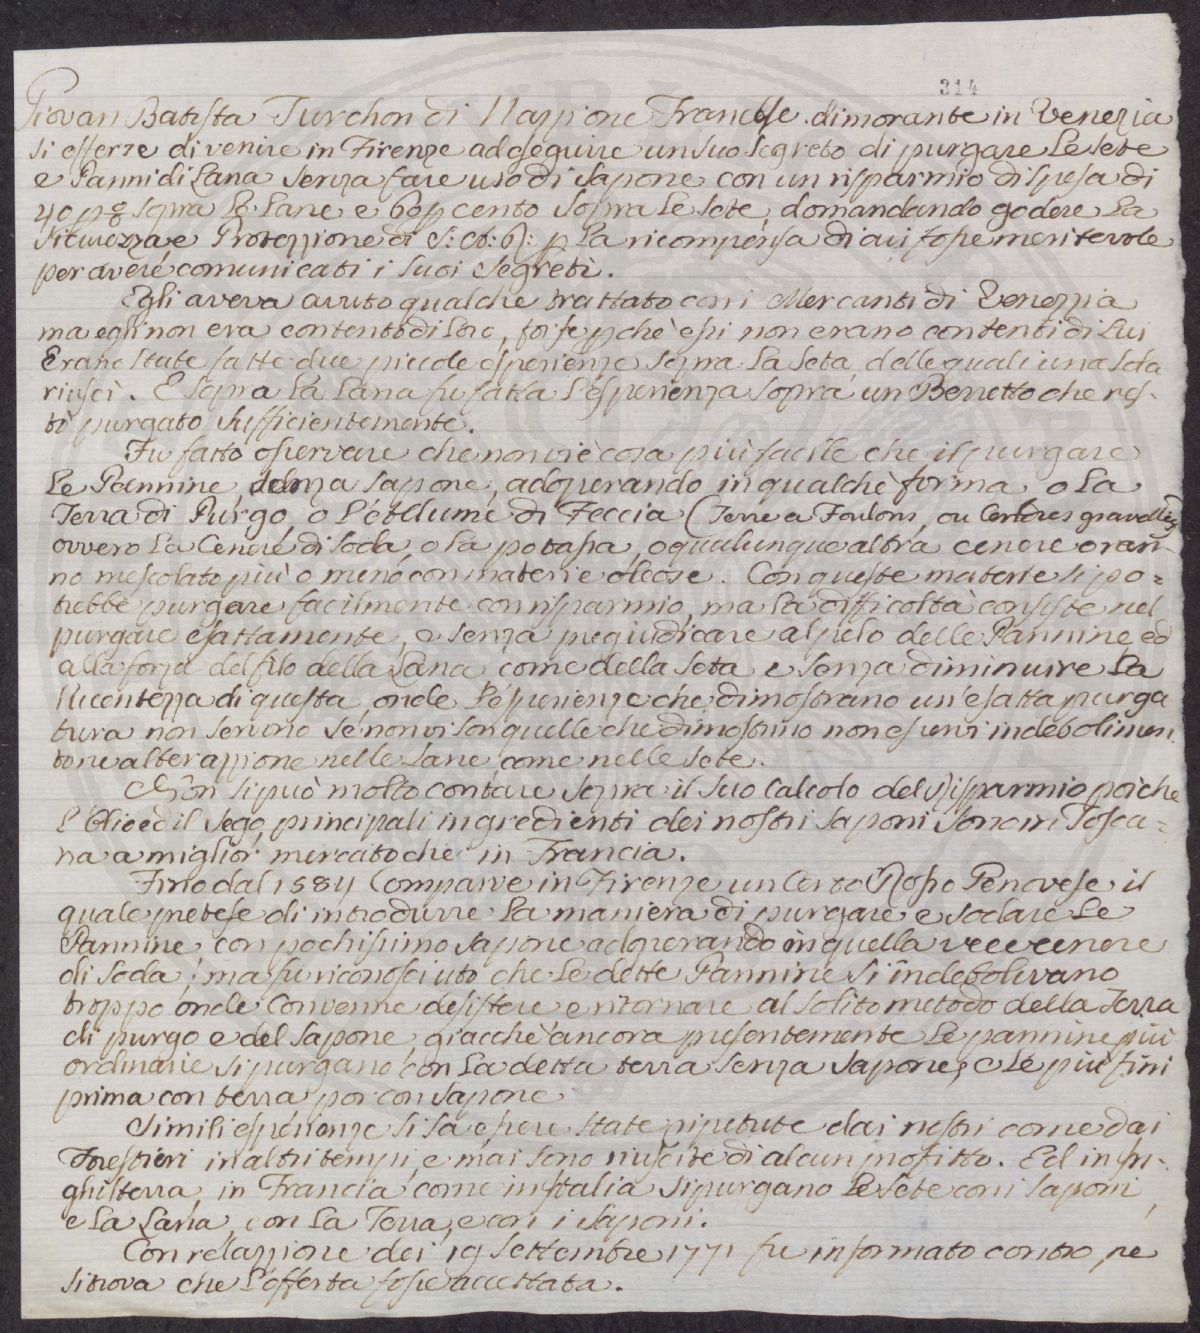 314
Giovan Batista Turchon di Nazzione Francese dimorante in Venezia
si offerze di venire in Firenze ad eseguire un suo segreto di purgare Le Sete
e Panni di Lana senza fare uso di Sapone con un risparmio di spesa di
40 p% sopra Le Lane e 60 p cento sopra Le Sete, domandando godere La
Sicurezza, e Protezzione di p La ricompensa di cui fosse meritevole
per avere comunicati i suoi Segreti.
Egli aveva avuto qualche trattato con i Mercanti di Venezzia
ma egli non era contento di Loro, forse pchè essi non erano contenti di Lui
Erano state fatte due piccole esperienze sopra La Seta, delle quali una sola
riuscì. E sopra La Lana fu fatta L'esperienza sopra un Berretto che res-
tò purgato sufficientemente.
Fu fatto osservare che non vi è cosa più facile che il purgare
Le Pannine senza Sapone, adoperando in qualche forma o La
Terra di Purgo, o L'Allume di Feccia (Terre a Foulons, ou Cendres gravellées)
ovvero La Cenere di soda, o La potassa, o qualunque altra cenere o ran-
no mescolato più o meno con materie oleose. Con queste materie si po=
trebbe purgare facilmente con risparmio, ma La difficoltà consiste nel
purgare esattamente, e senza pregiudicare al pelo delle Pannine, ed
alla forza del filo della Lana come della seta e senza diminuire La
Lucentezza di questa, onde L'esperienze che dimostrano un'esatta purga
tura non servono se non vi son quelle che dimostrino non esservi indebolimen-
to ne alterazzione nelle Lane, come nelle Sete.
Non si può molto contare sopra il suo Calcolo del Risparmio poiche
L'Olio ed il Sego, principali ingredienti dei nostri Saponi sono in Tosca=
na a miglior mercato che in Francia.
Fino dal 1584 Comparve in Firenze un Certo Rosso Genovese il
quale pretese di introdurre La maniera di purgare e sodare Le
Pannine con pochissimo sapone adoperando in quella vece cenere
di Soda; ma fu riconosciuto che Le dette Pannine si indebolivano
troppo onde Convenne desistere e ritornare al solito metodo della Terra
di purgo e del Sapone, giacchè ancora presentemente Le pannine più
ordinarie si purgano con La detta terra senza Sapone, e Le più fini
prima con terra poi con Sapone
Simili esperienze si sa essere state ripetute dai nostri come dai
Forestieri in altri tempi, e mai sono riuscite di alcun profitto. Ed in In-
ghilterra, in Francia come in Italia si purgano Le Sete con i Saponi,
e La Lana con La Terra, e con i Saponi.
Con relazzione dei 19 Settembre 1771 fu informato contro, ne
si trova che L'offerta fosse accettata.